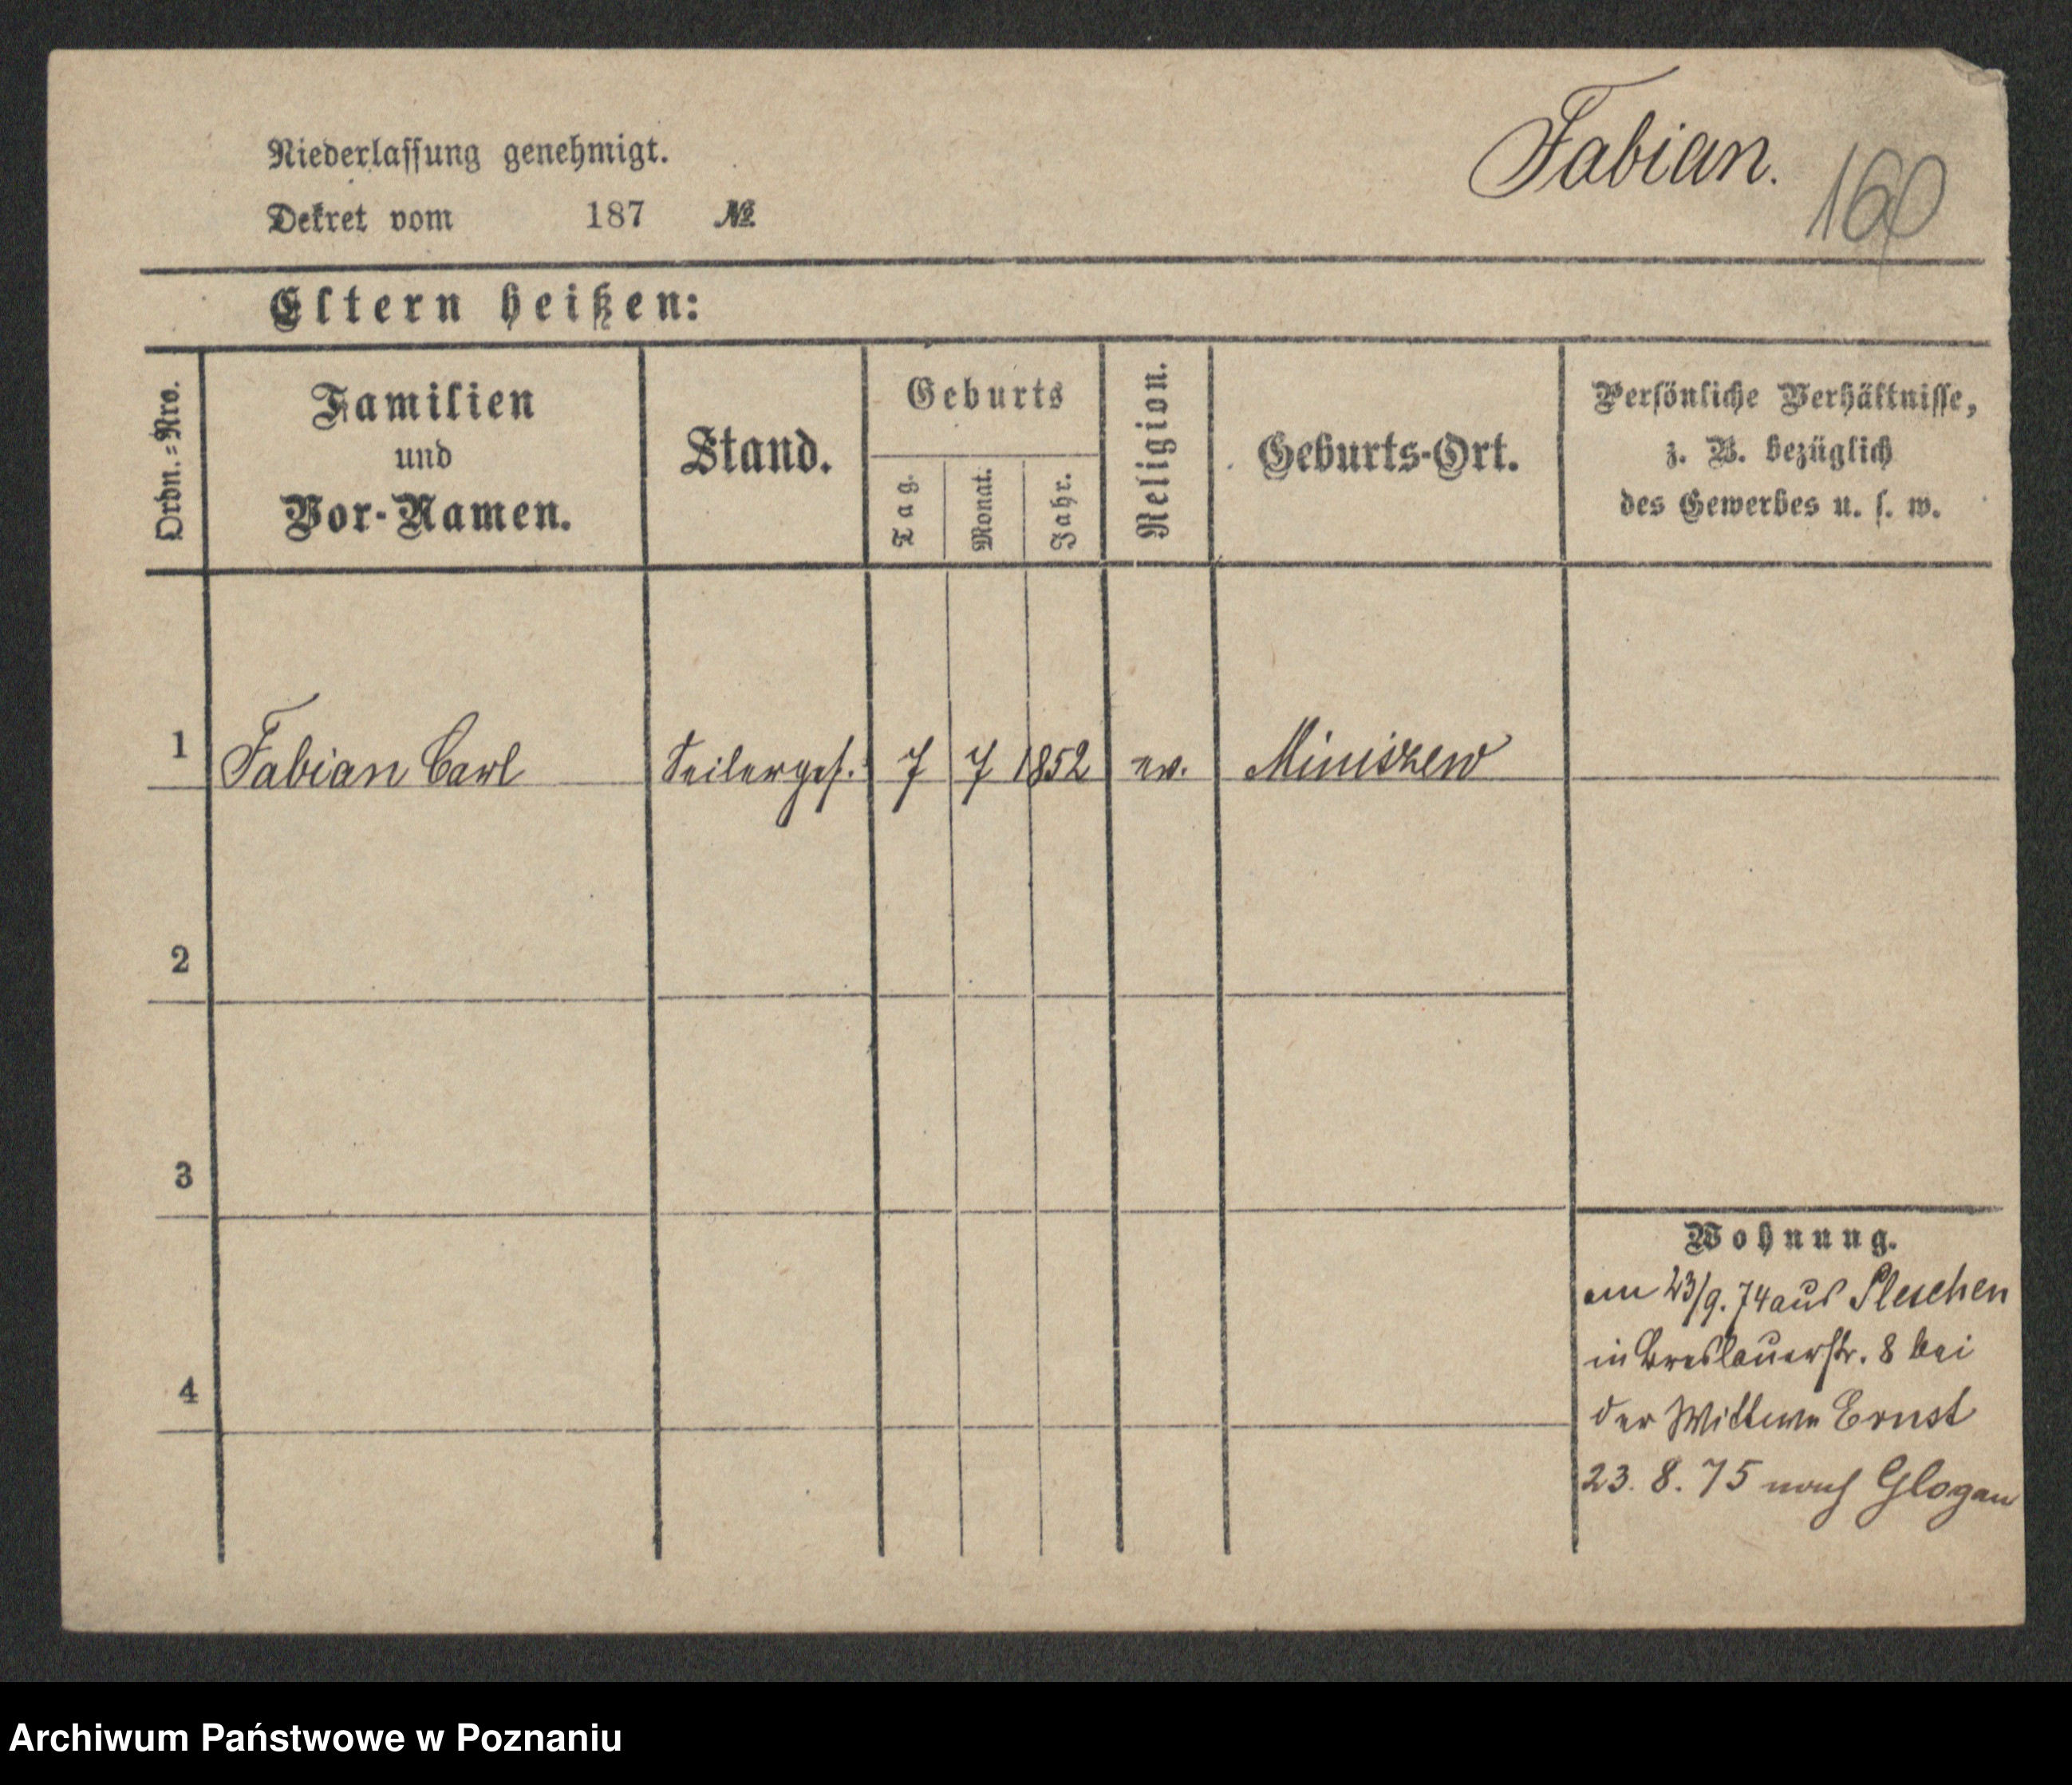 Fabian.
160
Niederlassung genehmigt.
Dekret vom 187 №
Eltern heißen:
Ordn.=Nro.
Familien
und
Vor-Namen.
Stand.
Geburts
Tag.
Monat.
Jahr.
Religion.
Geburts-Ort.
Persönliche Verhältnisse,
z. B. bezüglich
des Gewerbes u. s. w.
1 Fabian Carl Seilerges. 7 7 1852 ev. Miniszew
2
3
4
Wohnung.
am 23/9. 74 aus Pleschen
in Breslauerstr. 8 bei
der Wittwe Ernst
23. 8. 75 nach Glogau
Archiwum Państwowe w Poznaniu